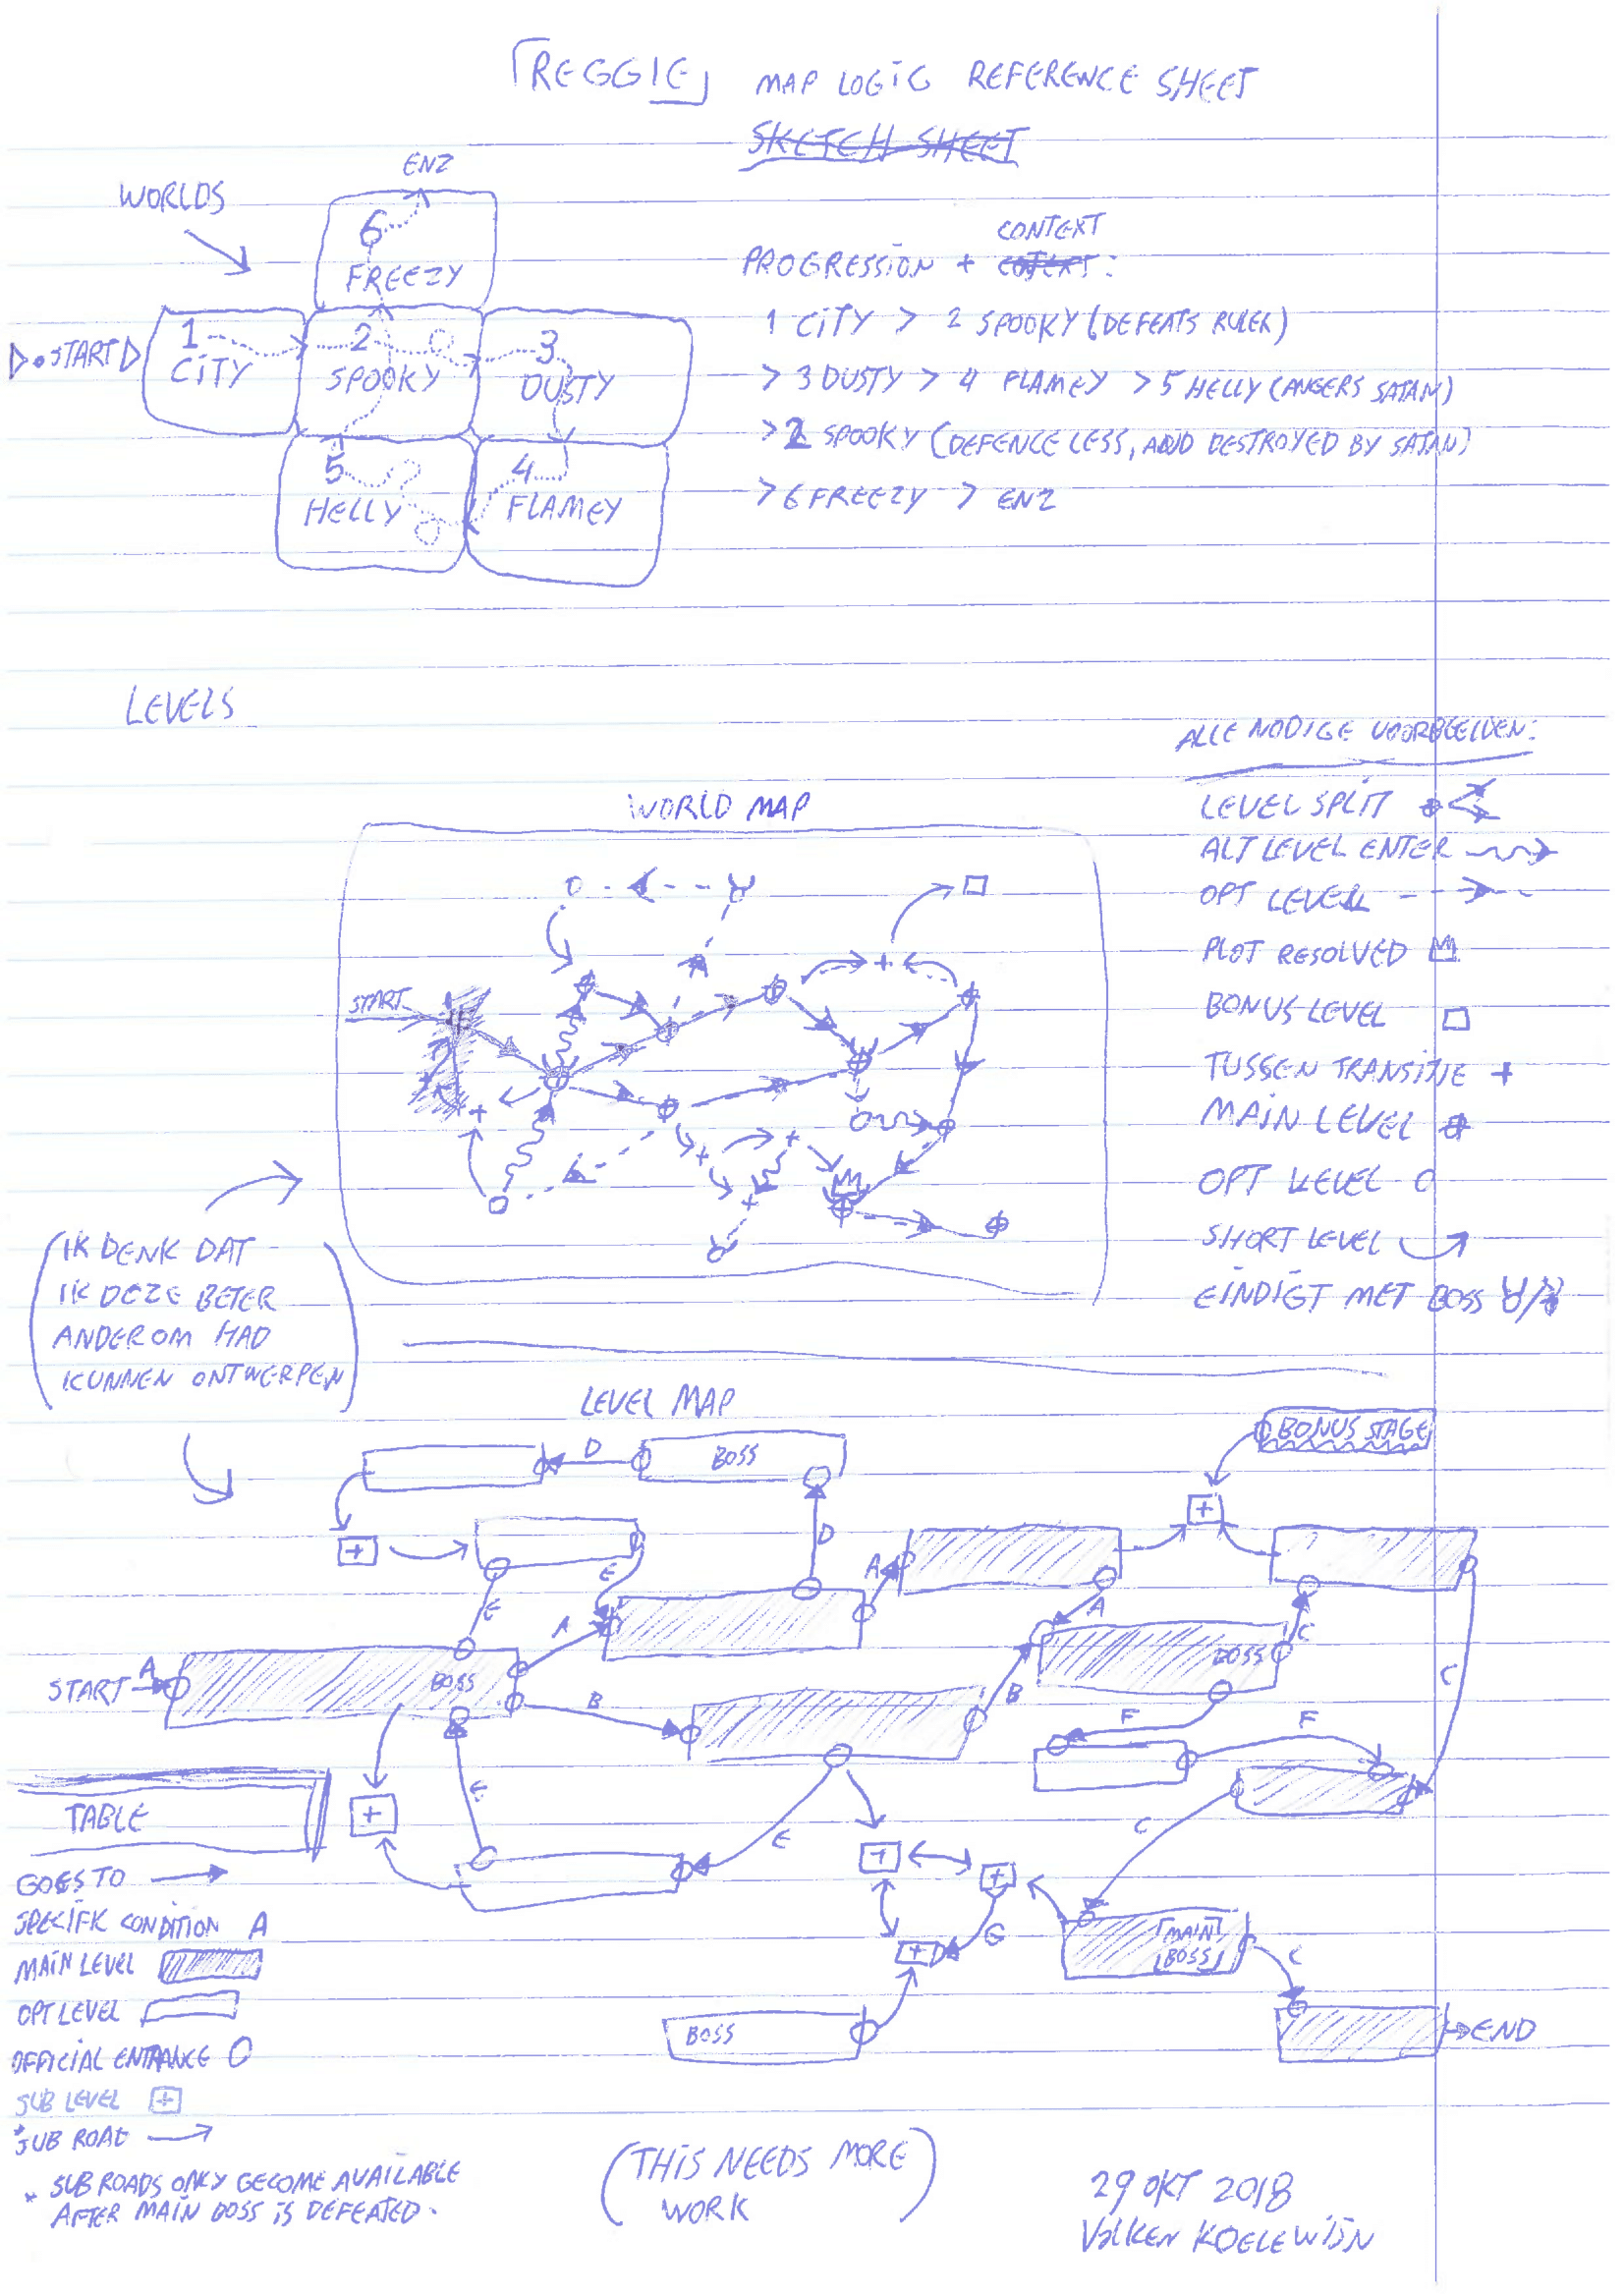 「REGGIE」 MAP LOGIC REFERENCE SHEET
SKETCH SHEET
WORLDS
ENZ
6
FREEZY
START
1
CITY
2
SPOOKY
3
DUSTY
5
HELLY
4
FLAMEY
CONTEXT
PROGRESSION + CONTEXT:
1 CITY > 2 SPOOKY (DEFEATS RULER)
> 3 DUSTY > 4 FLAMEY > 5 HELLY (ANGERS SATAN)
> 2 SPOOKY (DEFENCE LESS, AND DESTROYED BY SATAN)
> 6 FREEZY > ENZ
LEVELS
ALLE NODIGE VOORBEELDEN:
LEVEL SPLIT
ALT LEVEL ENTER
OPT LEVEL
PLOT RESOLVED
BONUS LEVEL
TUSSEN TRANSITIE +
MAIN LEVEL
OPT LEVEL O
SHORT LEVEL
EINDIGT MET BOSS
WORLD MAP
START
(IK DENK DAT
IK DEZE BETER
ANDEROM HAD
KUNNEN ONTWERPEN)
LEVEL MAP
BONUS STAGE
D
BOSS
+
+
D
E
A
E
A
A
START A
BOSS
B
B
BOSS
C
C
F
F
E
E
+
C
+
+
G
+
MAIN
BOSS
C
BOSS
END
TABLE
GOES TO
SPECIFIK CONDITION A
MAIN LEVEL
OPT LEVEL
OFFICIAL ENTRANCE O
SUB LEVEL +
*SUB ROAD
* SUB ROADS ONLY BECOME AVAILABLE
AFTER MAIN BOSS IS DEFEATED.
(THIS NEEDS MORE
WORK)
29 OKT 2018
VOLKEN KOELEWIJN